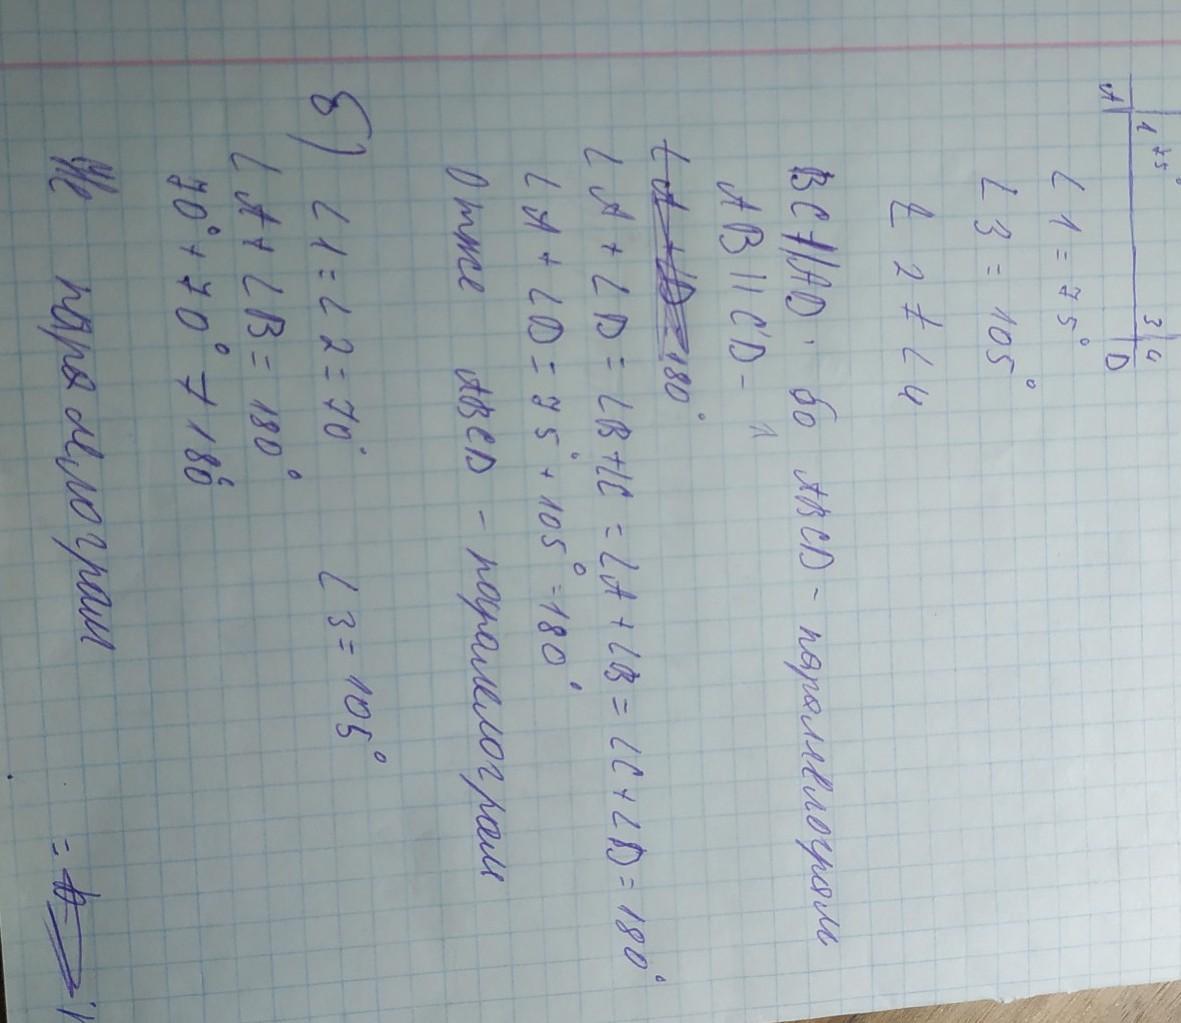 A 1 75° 3 4 D
∠1 = 75°
∠3 = 105°
∠2 ≠ ∠4
BC ∦ AD. бо ABCD - паралелограм
AB || CD -
180°
∠A + ∠D = ∠B + ∠C = ∠A + ∠B = ∠C + ∠D = 180°
∠A + ∠D = 75° + 105° = 180°
Отже ABCD - паралелограм
б) ∠1 = ∠2 = 70° ∠3 = 105°
∠A + ∠B = 180°
70° + 70° ≠ 180°
Не паралелограм